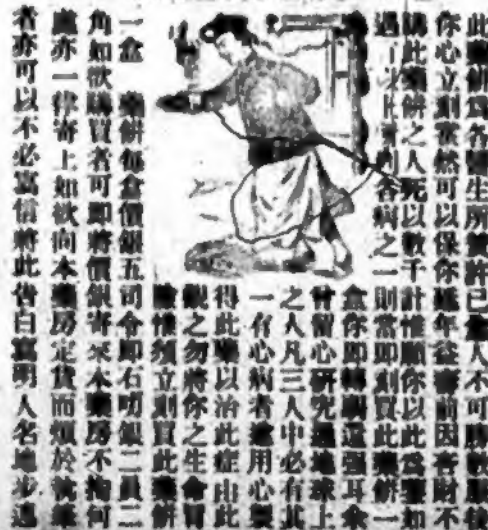 此藥餅為各醫生所讚許已救人不可勝數服後
你心立刻然可以保你延年益壽前因吝財不
購此藥餅之人死以數千計惟願你以此為鑒如
遇了以上所列各病之一則當即刻買此藥餅一
盒你即轉弱還强耳余
曾留心研究過地球上
之人凡三人中必有其
一有心病者遂用心製
得此藥以治此症由此
觀之勿將你之生命冒
險惟須立刻買此藥餅
一盒 藥餅每盒價銀五司令即右呖銀二員二
角如欲購買者可即將價銀寄來本藥房不拘何
處亦一律寄上如欲向本藥房定貨而煩於執筆
者亦可以不必寫信將此告白寫明人名地步